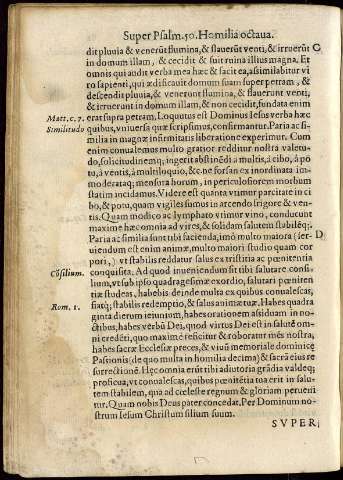 Super Psalm. 50. Homilia octaua.
dit pluuia & venerūt flumina, & flauerūt venti, & irruerūt C
in domum illam, & cecidit & fuit ruina illius magna. Et
omnis qui audit verba mea hæc & facit ea, assimilabitur vi
ro sapienti, qui ædificauit domum suam super petram, &
descendit pluuia, & venerunt flumina, & flauerunt venti,
& irruerunt in domum illam, & non cecidit, fundata enim
Matt. c. 7. erat supra petram. Loquutus est Dominus Iesus verba hæc
Similitudo quibus, vniuersa quæ scripsimus, confirmantur. Paria ac si-
milia in magnæ infirmitatis liberatione experimur. Cum
enim conualemus multo gratior redditur nostra valetu-
do, solicitudinemq; ingerit abstinēdi à multis, à cibo, à po
tu, à ventis, à multiloquio, & c. ne forsan ex inordinata im-
moderataq; mensura horum, in periculosiorem morbum
statim incidamus. Videre est quanta vtimur parcitate in ci
bo, & potu, quam vigiles sumus in arcendo frigore & ven-
tis. Quam modico ac lymphato vtimur vino, conducunt
maxime hæc omnia ad vires, & solidam salutem stabilēq;.
Paria ac similia sunt tibi facienda, imò multo maiora (ser- D
uiendum est enim animæ, multo maiori studio quam cor
pori,) vt stabilis reddatur salus ex tristitia ac pœnitentia
Cōsilium. conquisita. Ad quod inueniendum sit tibi salutare consi-
lium, vt sub ipso quadragesimæ exordio, salutari pœniten
tiæ studeas, habebis deinde multa ex quibus conualescas,
Rom. 1. fiatq; stabilis redemptio, & salus animæ tuæ. Habes quadra
ginta dierum ieiunium, habes orationem asiduam in no-
ctibus, habes verbū Dei, quod virtus Dei est in salutē om-
ni credēti, quo maximè reficitur & roboratur mēs nostra,
habes sacræ Ecclesiæ preces, & viuū memoriale dominicę
Passionis (de quo multa in homilia decima) & sacræ eius re
surrectionē. Hęc omnia erūt tibi adiutoria grādia valdeq;
proficua, vt conualescas, quibus pœnitētia tua erit in salu-
tem stabilem, qua ad cęleste regnum & gloriam perueni
tur. Quam nobis Deus pater concedat. Per Dominum no-
strum Iesum Christum filium suum.
SVPER